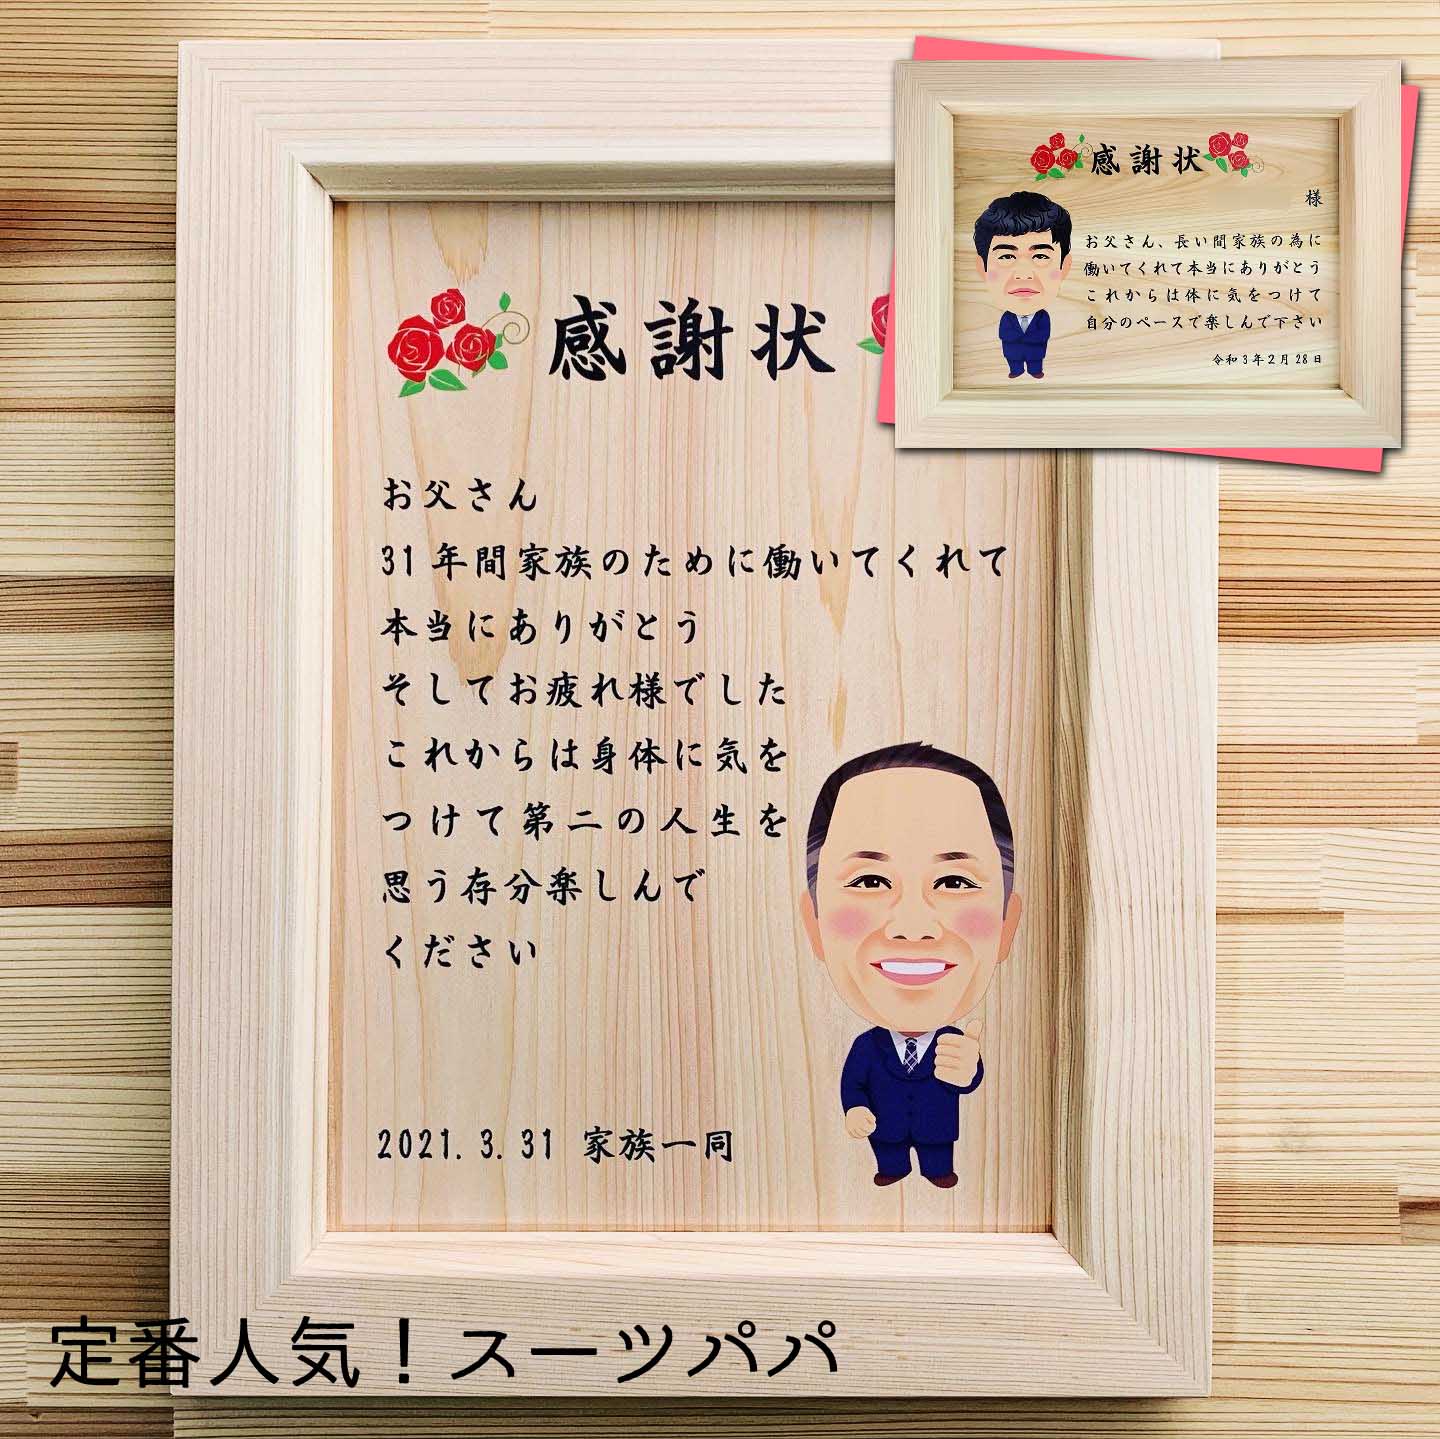 感謝状
お父さん
31年間家族のために働いてくれて
本当にありがとう
そしてお疲れ様でした
これからは身体に気を
つけて第二の人生を
思う存分楽しんで
ください
2021.3.31 家族一同
感謝状
様
お父さん、長い間家族の為に
働いてくれて本当にありがとう
これからは体に気をつけて
自分のペースで楽しんで下さい
令和3年2月28日
定番人気！スーツパパ